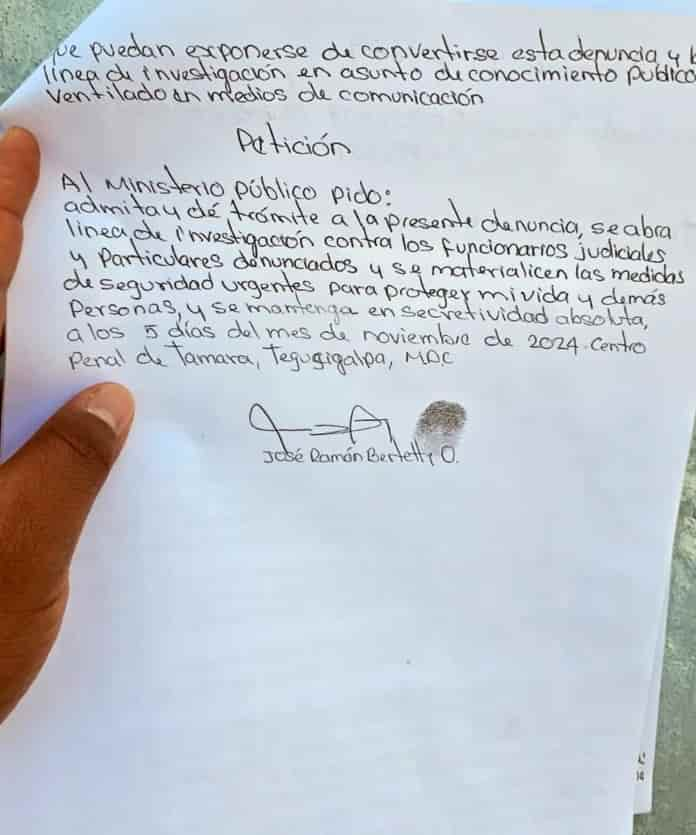 que puedan exponerse de convertirse esta denuncia y
línea de investigación en asunto de conocimiento público
ventilado en medios de comunicación
Petición
Al Ministerio público pido:
admita y dé trámite a la presente denuncia, se abra
línea de investigación contra los funcionarios judiciales
y particulares denunciados y se materialicen las medidas
de seguridad urgentes para proteger mi vida y demás
personas, y se mantenga en secretividad absoluta,
a los 5 días del mes de noviembre de 2024. Centro
Penal de Tamara, Tegucigalpa, M.D.C
José Ramón Bertetty O.